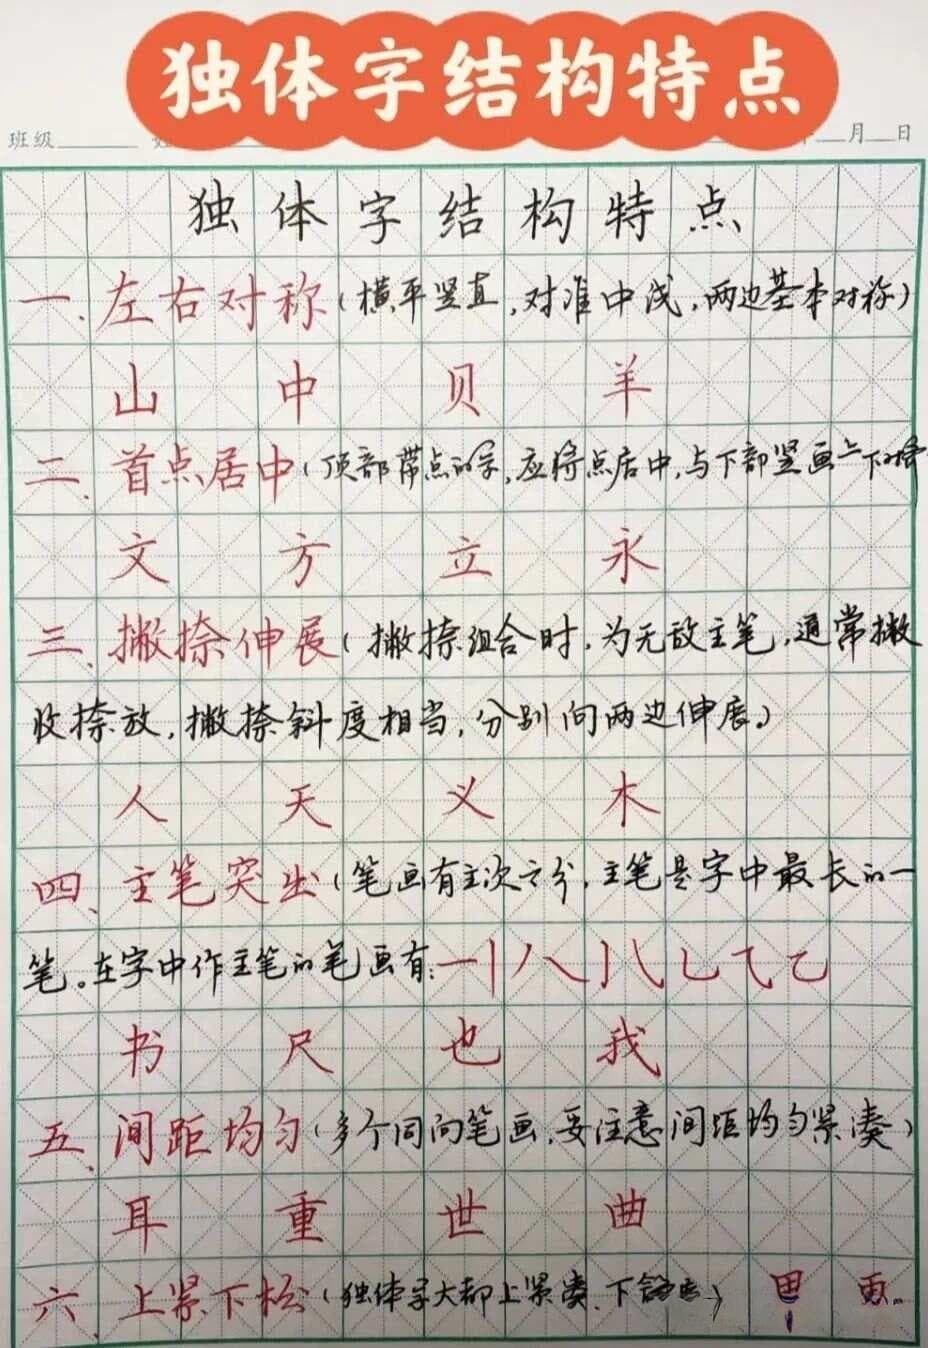 独体字结构特点
班级 月 日
独体字结构特点
一、左右对称(横平竖直,对准中线,两边基本对称)
山 中 贝 羊
二、首点居中(顶部带点的字,应将点居中,与下部竖画上下对
文 方 立 永
三、撇捺伸展(撇捺组合时,为无敌主笔,通常撇
收捺放,撇捺斜度相当,分别向两边伸展。)
人 天 义 木
四、主笔突出(笔画有主次之分,主笔是字中最长的一
笔。在字中作主笔的笔画有:一丨丿㇏亅㇂乚⺄乙
书 尺 也 我
五、间距均匀(多个同向笔画,要注意间距均匀紧凑)
耳 重 世 曲
六、上紧下松(独体字大都上紧凑、下舒 ) 更